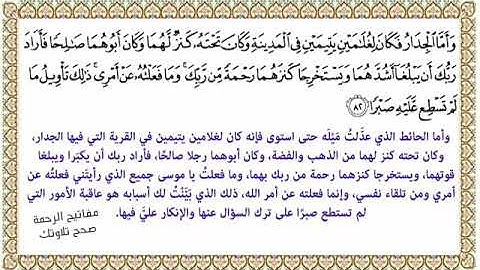 وَأَمَّا ٱلْجِدَارُ فَكَانَ لِغُلَٰمَيْنِ يَتِيمَيْنِ فِي ٱلْمَدِينَةِ وَكَانَ تَحْتَهُۥ كَنزٌ لَّهُمَا وَكَانَ أَبُوهُمَا صَٰلِحًا فَأَرَادَ
رَبُّكَ أَن يَبْلُغَآ أَشُدَّهُمَا وَيَسْتَخْرِجَا كَنزَهُمَا رَحْمَةً مِّن رَّبِّكَۚ وَمَا فَعَلْتُهُۥ عَنْ أَمْرِيۚ ذَٰلِكَ تَأْوِيلُ مَا
لَمْ تَسْطِع عَّلَيْهِ صَبْرًا ٨٢
وأما الحائط الذي عدَلْتُ مَيْلَه حتى استوى فإنه كان لغلامين يتيمين في القرية التي فيها الجدار،
وكان تحته كنز لهما من الذهب والفضة، وكان أبوهما رجلا صالحًا، فأراد ربك أن يكبَرا ويبلغا
قوتهما، ويستخرجا كنزهما رحمة من ربك بهما، وما فعلتُ يا موسى جميع الذي رأيتَني فعلتُه عن
أمري ومن تلقاء نفسي، وإنما فعلته عن أمر الله، ذلك الذي بَيَّنْتُ لك أسبابه هو عاقبة الأمور التي
لم تستطع صبرًا على ترك السؤال عنها والإنكار عليَّ فيها.
مفاتيح الرحمة
صحح تلاوتك